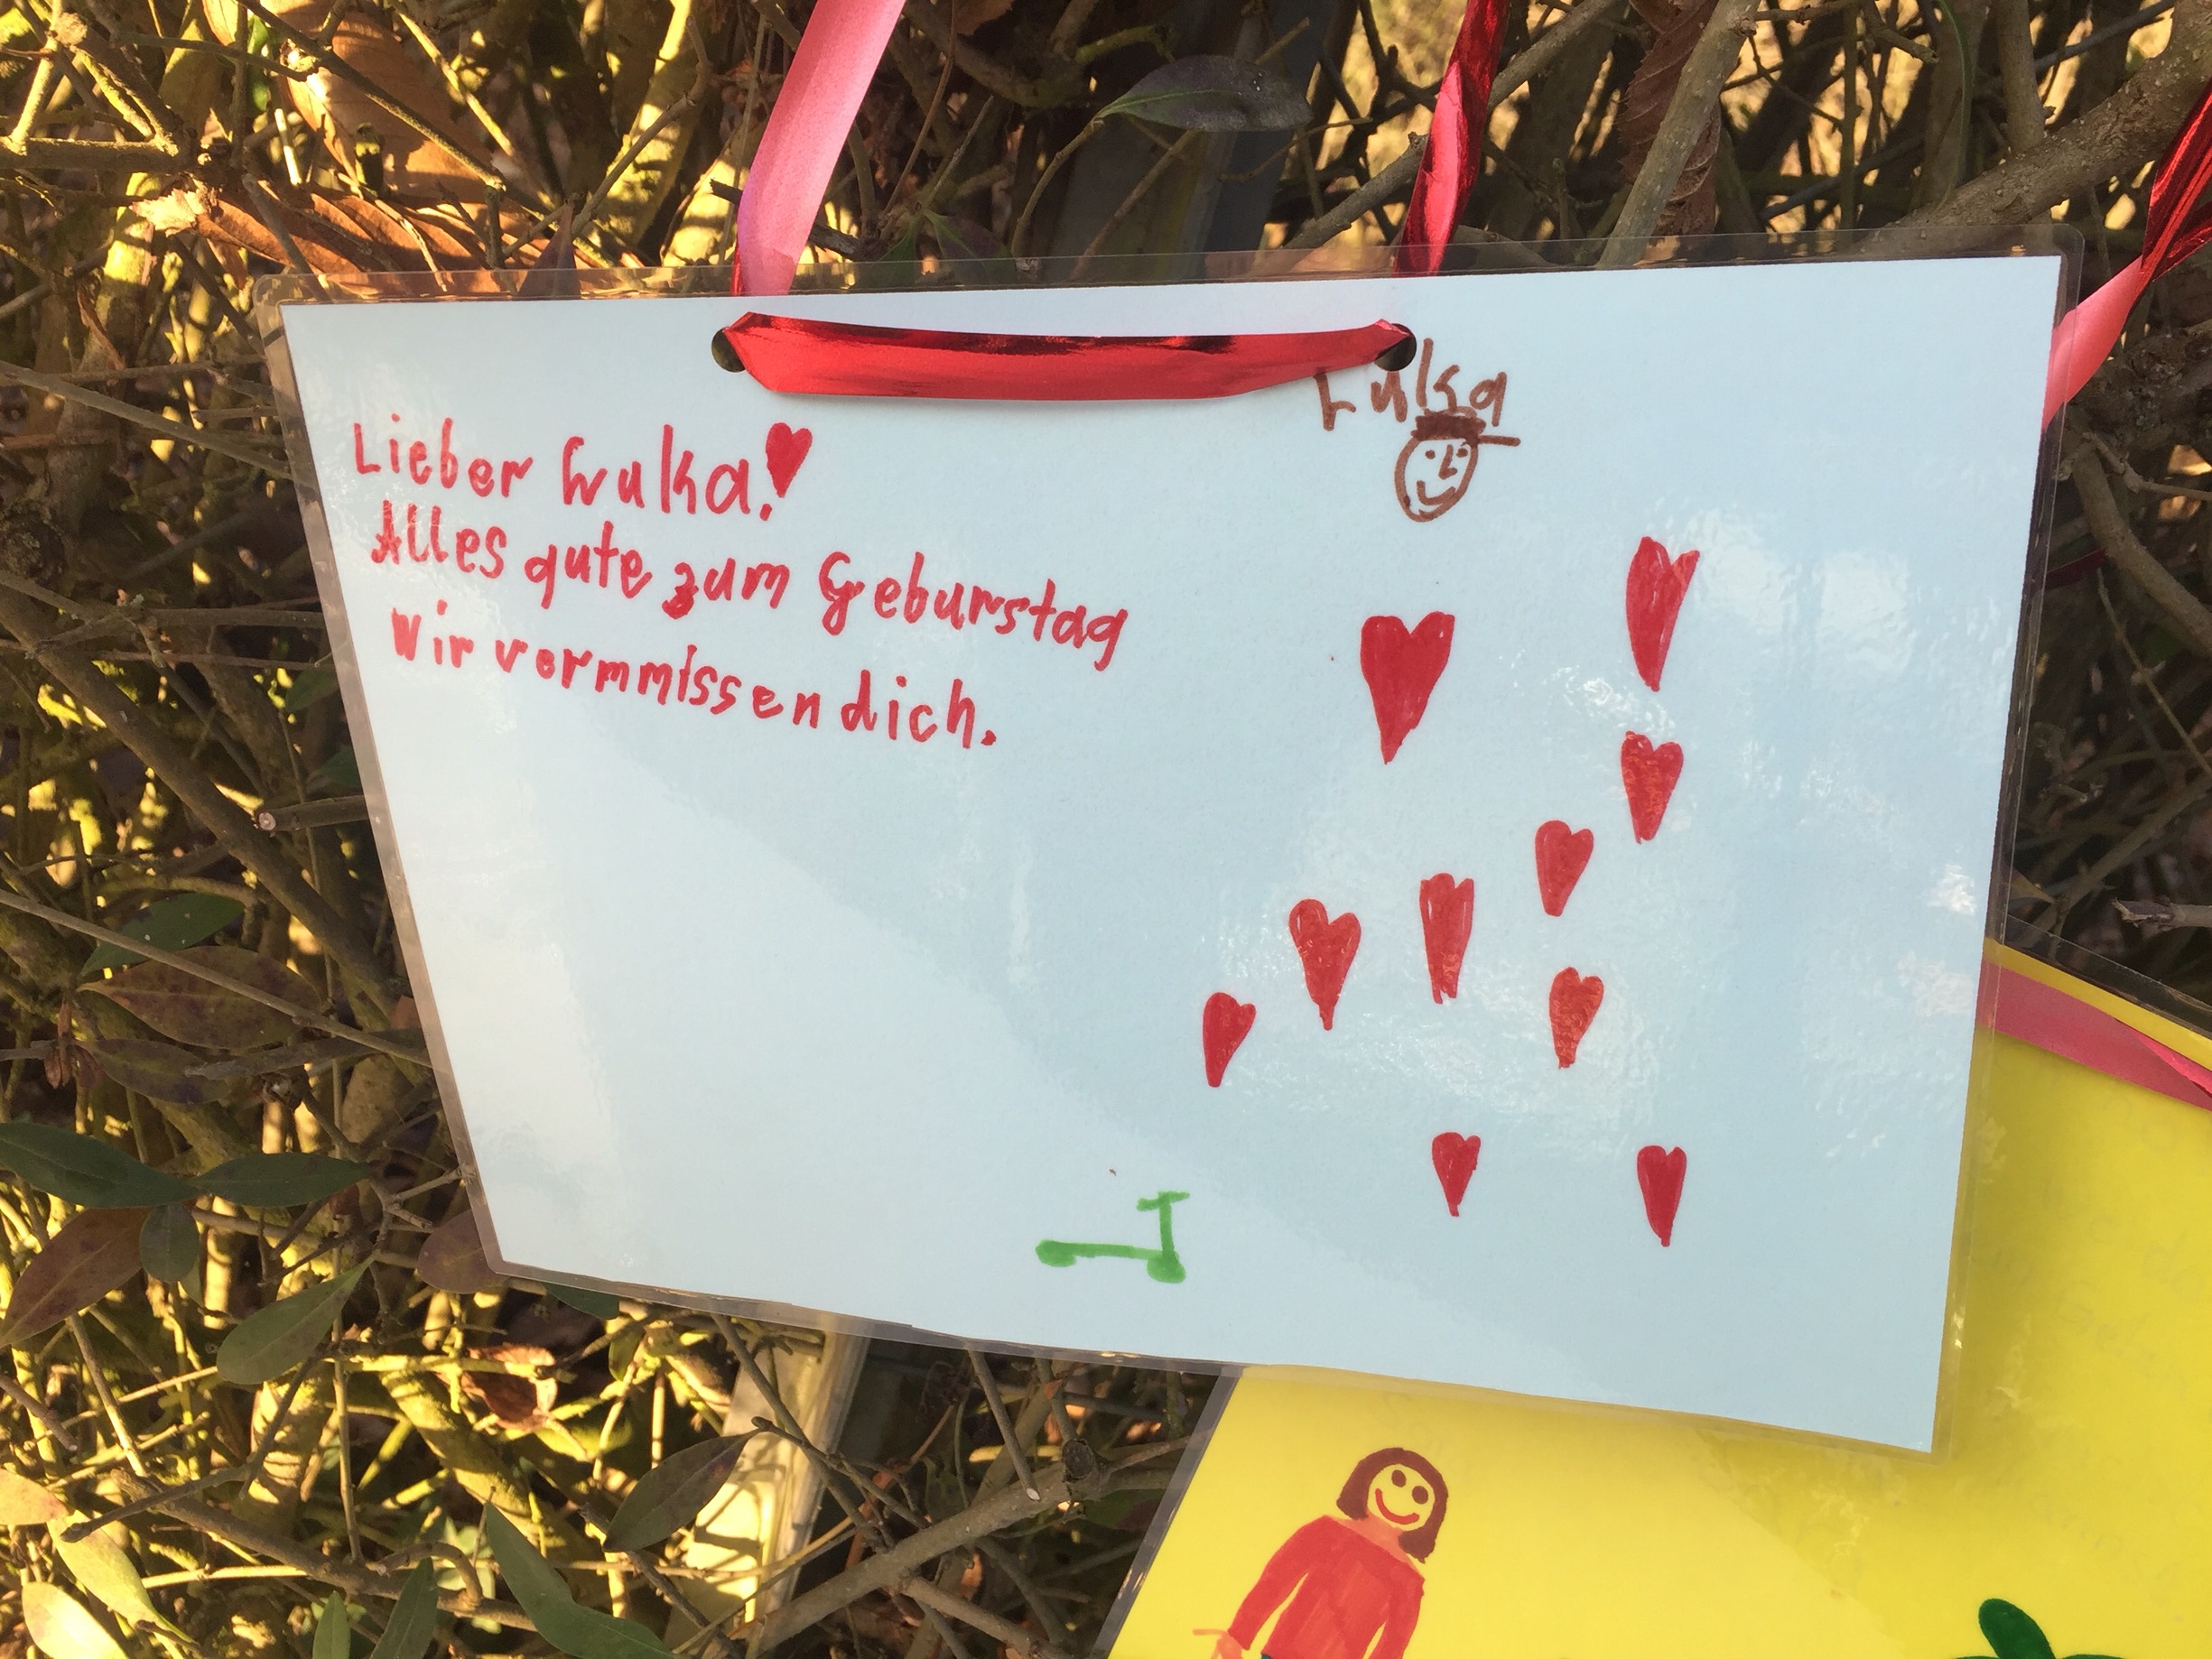 Lieber Luka!
Alles gute zum Geburstag
Wir vermmissen dich.
Luka